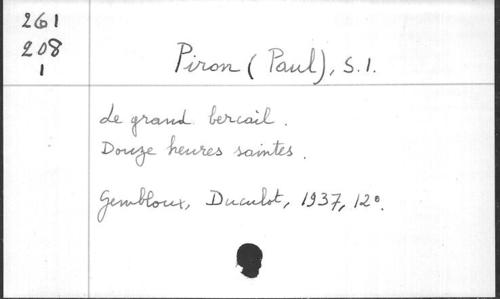 261
208
1
Piron (Paul), S.I.
Le grand bercail.
Douze heures saintes.
Gembloux, Duculot, 1937, 12°.